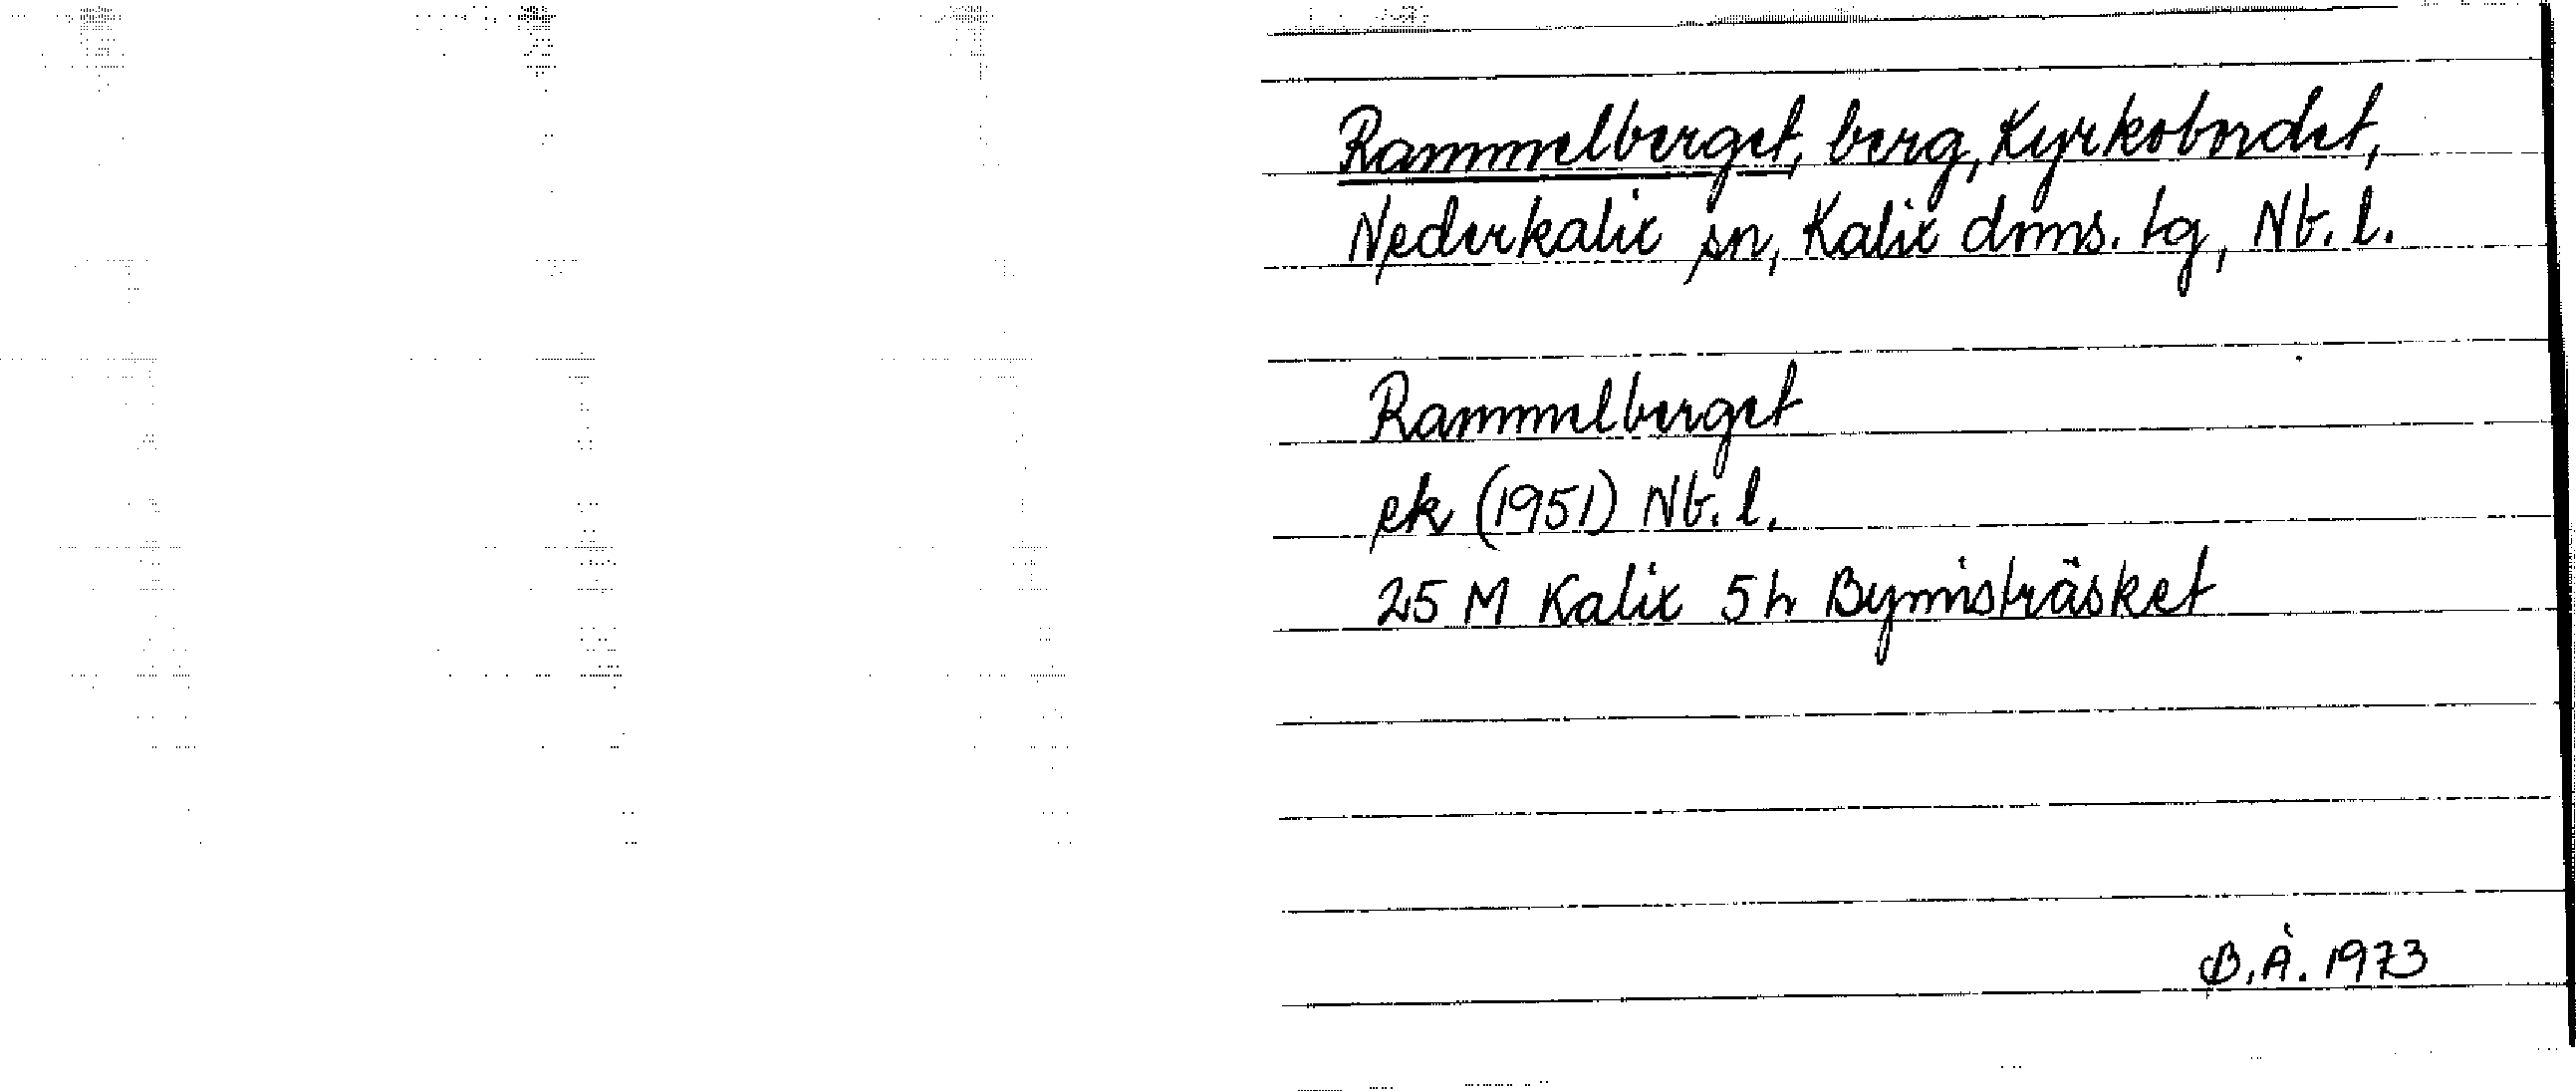 Rammelberget, berg, Kyrkobordet,
Nederkalix sn, Kalix dms. tg, Nb. l.
Rammelberget
ek (1951) Nb. l.
25 M Kalix 5 h Bymisträsket
B.Å. 1973